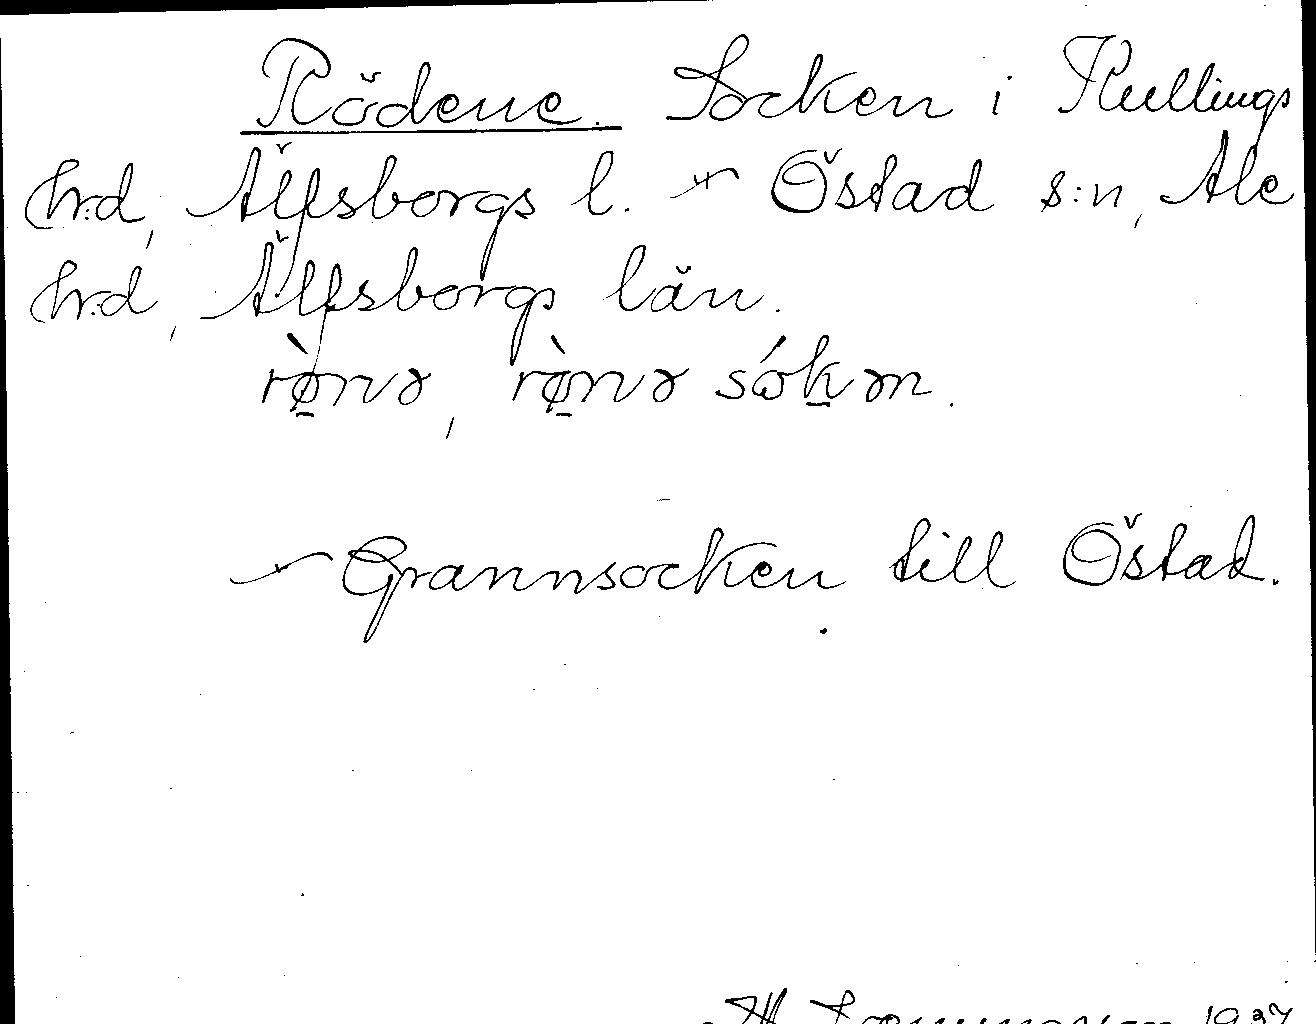 Rödene. Socken i Kullings
h:d, Älfsborgs l. — Östad s:n, Ale
h:d, Älfsborgs län.
rø̀nə, rø̀nə sókən.
— Grannsocken till Östad.
1937